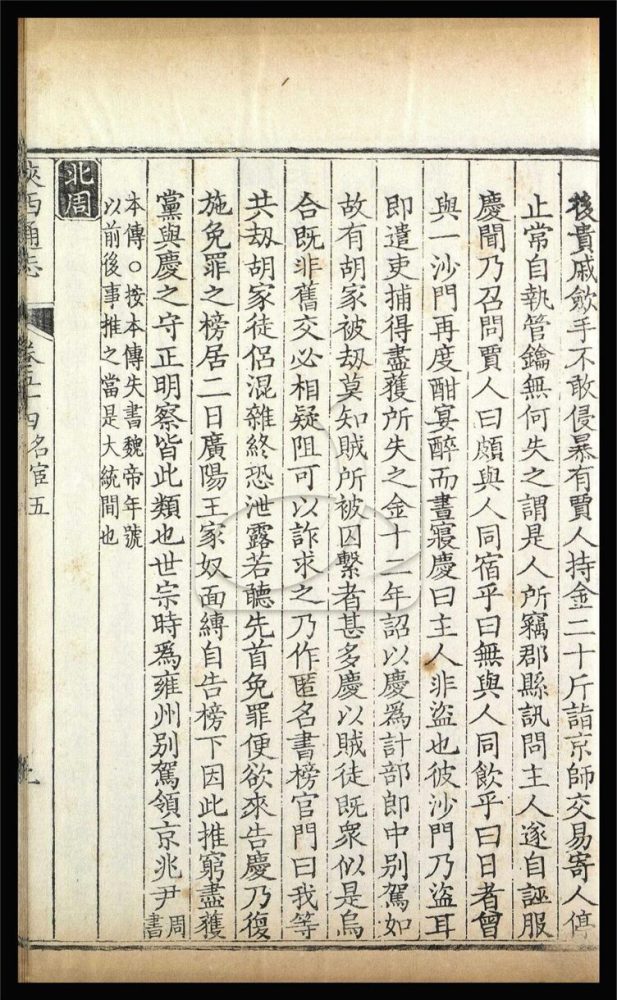 後貴戚斂手不敢侵暴有賈人持金二十斤詣京師交易寄人停
止常自執管鑰無何失之謂是人所竊郡縣訊問主人遂自誣服
慶聞乃召問賈人曰頗與人同宿乎曰無與人同飲乎曰日者曾
與一沙門再度酣宴醉而晝寢慶曰主人非盜也彼沙門乃盜耳
即遣吏捕得盡獲所失之金十二年詔以慶爲計部郎中别駕如
故有胡家被刼莫知賊所被囚繫者甚多慶以賊徒既衆似是烏
合既非舊交必相疑阻可以詐求之乃作匿名書榜官門曰我等
共刼胡家徒侶混雜終恐泄露若聽先首免罪便欲來告慶乃復
施免罪之榜居二日廣陽王家奴面縛自告榜下因此推窮盡獲
黨與慶之守正明察皆此類也世宗時爲雍州别駕領京兆尹周書
本傳○按本傳失書魏帝年號
以前後事推之當是大統間也
北周
陜西通志
卷五十四名宦五